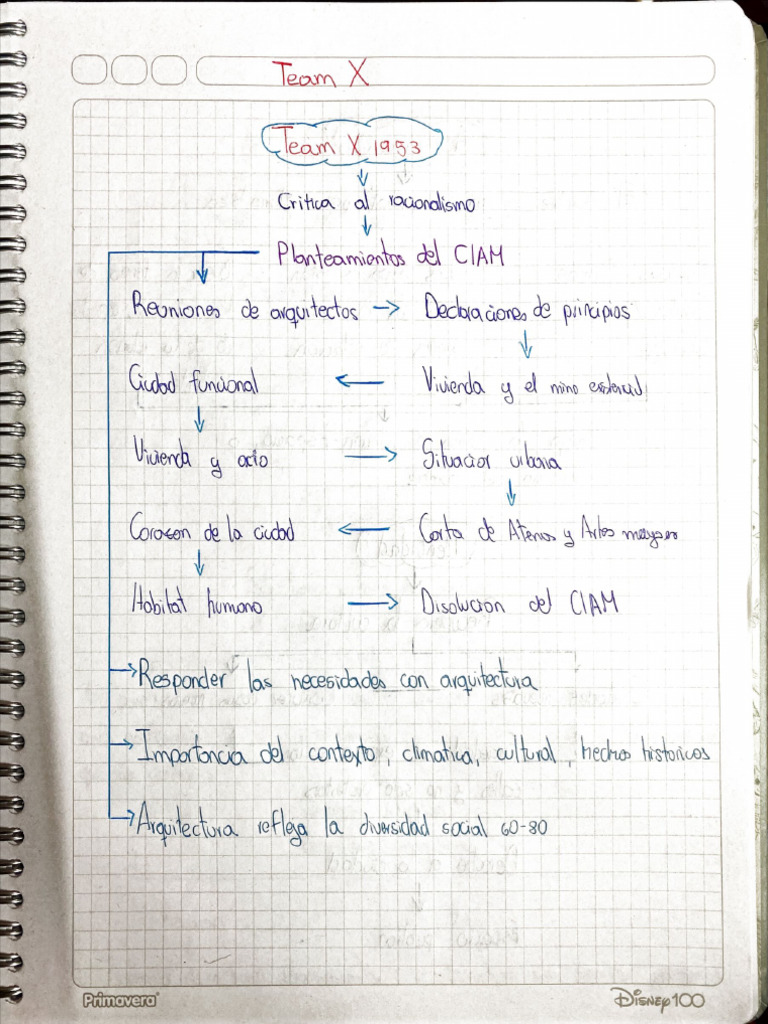 Team X
Team X 1953
Critica al racionalismo
Planteamientos del CIAM
Reuniones de arquitectos → Declaraciones de principios
Ciudad funcional ← Vivienda y el mino existencial
Vivienda y ocio → Situacion urbana
Corazon de la ciudad ← Carta de Atenas y Artes mayores
Habitat humano → Disolucion del CIAM
Responder las necesidades con arquitectura
Importancia del contexto, climatica, cultural, hechos historicos
Arquitectura refleja la diversidad social 60-80
Primavera
Disney100